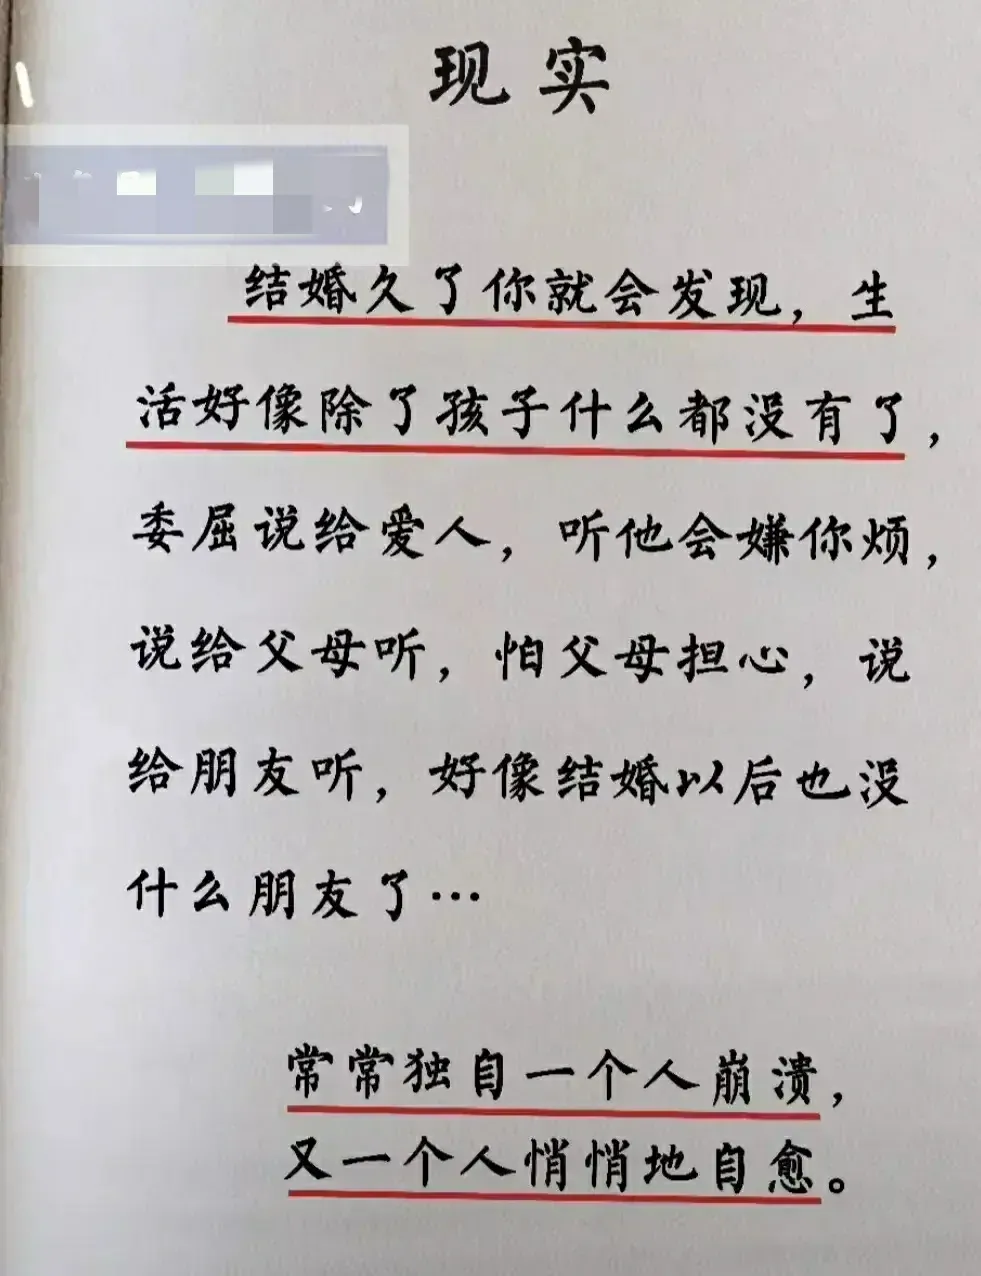 现实
结婚久了你就会发现，生
活好像除了孩子什么都没有了，
委屈说给爱人，听他会嫌你烦，
说给父母听，怕父母担心，说
给朋友听，好像结婚以后也没
什么朋友了…
常常独自一个人崩溃，
又一个人悄悄地自愈。